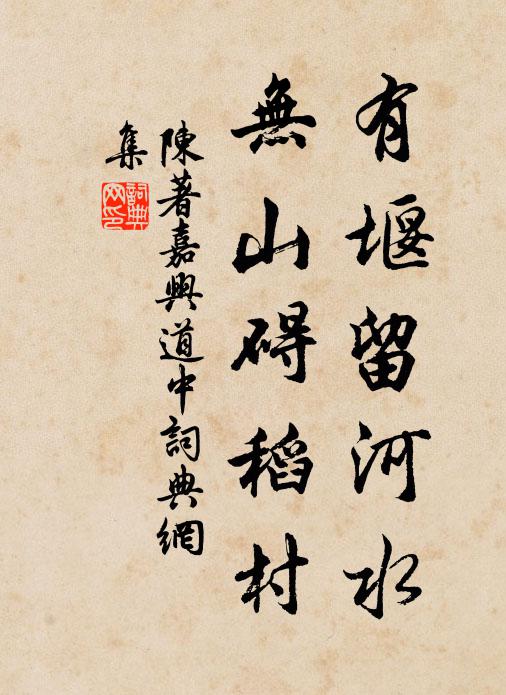 有堰留河水
無山碍稻村
陳著嘉興道中詞典網
集
詞典
网印